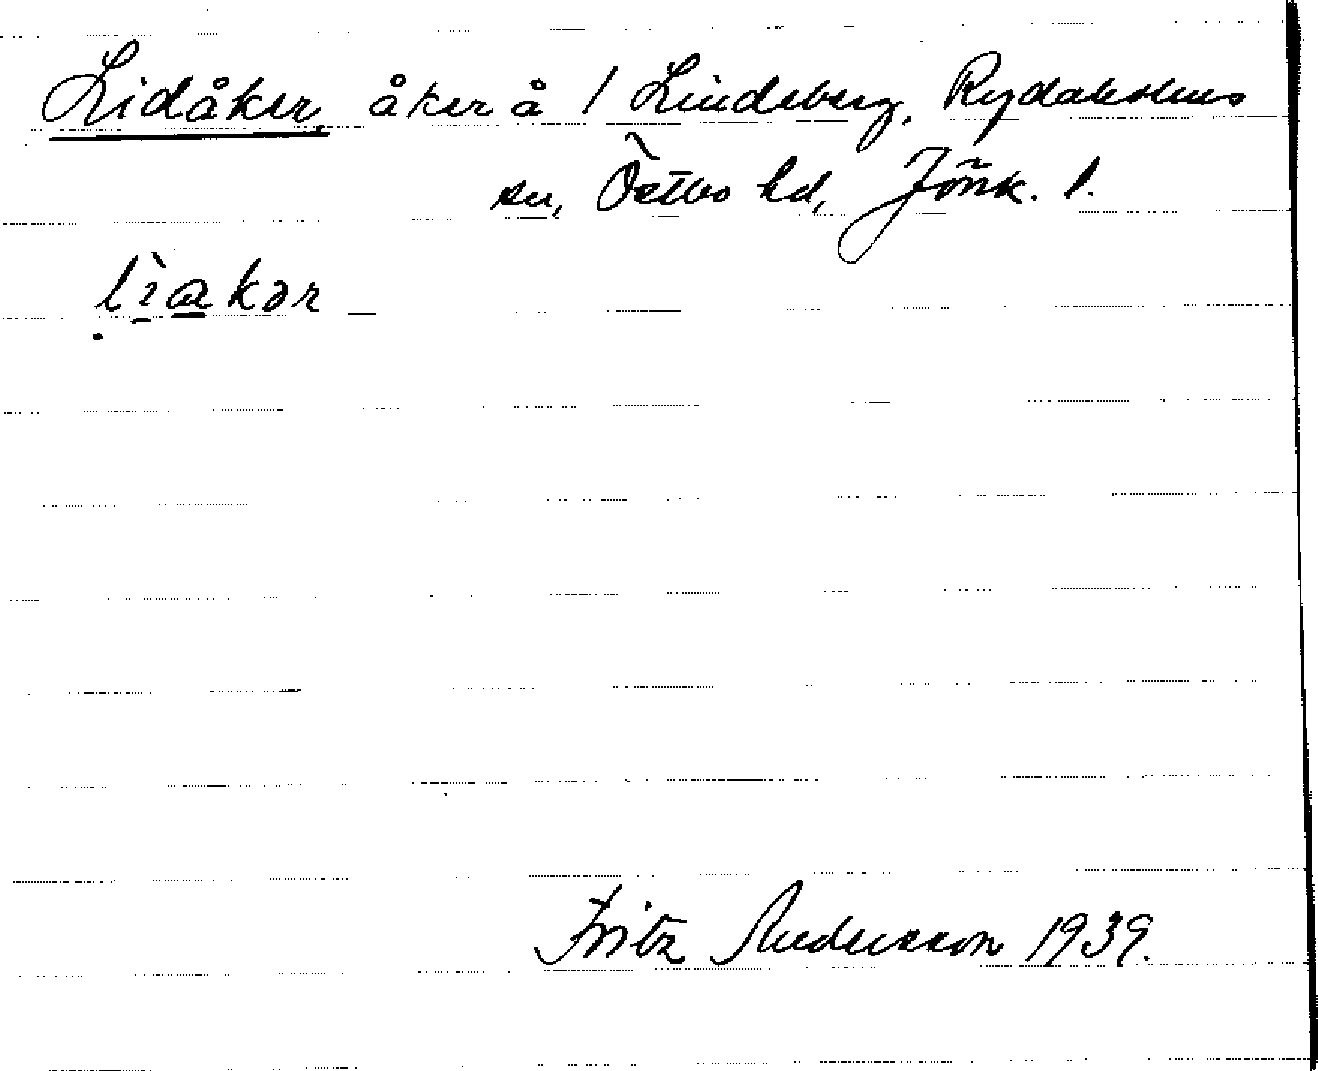 Lidåker, åker å / Lindeberg, Rydaholms
sn, Östbo hd, Jönk. l.
lìakər
Fritz Andersson 1939.